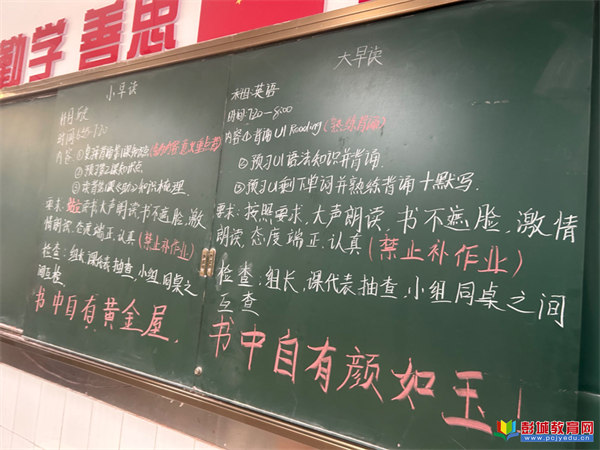 勤学 善思
小早读
科目:历史
时间:6:55-7:20
内容:①
②预习第2课知识点
要求:站立读书,大声朗读,书不遮脸,激
情朗读,态度端正,认真(禁止补作业)
检查:组长,课代表抽查,小组同桌之
间互检
书中自有黄金屋,
大早读
科目:英语
时间:7:20-8:00
内容:①背诵U1 Reading(熟练背诵)
②预习U1语法知识并背诵
③预习U1剩下单词并熟练背诵+默写.
要求:按照要求,大声朗读,书不遮脸,激情
朗读,态度端正,认真(禁止补作业)
检查:组长,课代表抽查,小组同桌之间
互查
书中自有颜如玉!
彭城教育网
www.pcjyedu.cn